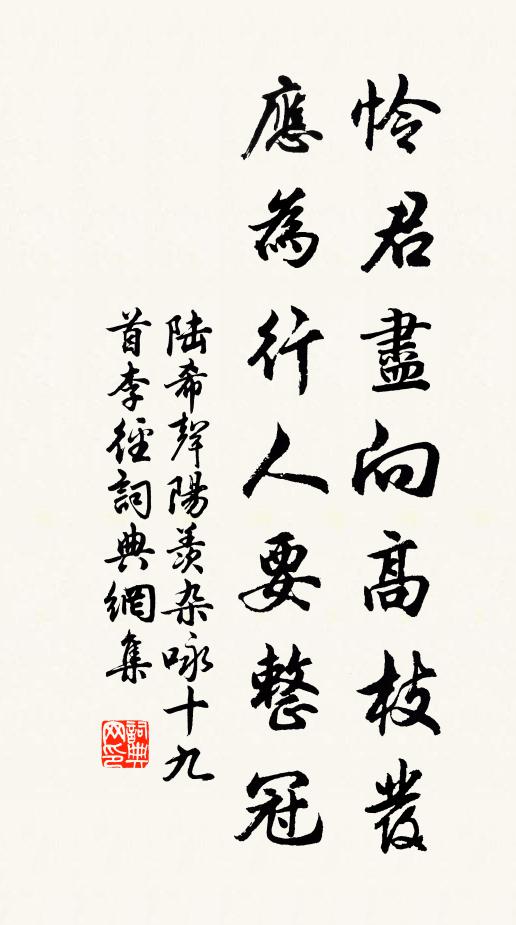 怜君盡向高枝發
應為行人要整冠
陆希聲陽羨杂咏十九
首李徑詞典網集
詞典网印